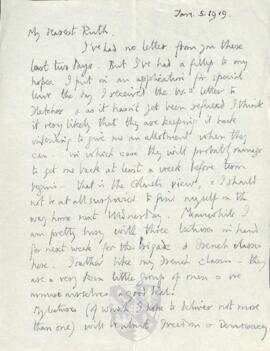 Jan. 5. 1919.
My Dearest Ruth.
I've had no letter from you these
last two days. But I've had a fillip to my
hopes. I put in an application for special
leave the day I received the letter to
Fletcher & as it hasn't yet been refused I think
it very likely that they are keeping it back
intending to give me an allotment when they
can – in which case they will probably manage
to get me back at least a week before term
begins – that is the Colonel's view, & I should
not be at all surprised to find myself on the
way home next Wednesday. Meanwhile I
am pretty busy with three lectures in hand
for next week for this brigade & French classes
here. I rather like my French classes – they
are a very keen little group of men & we
amuse ourselves a good deal.
My lectures (of which I hope to deliver not more
than one) will be about Freedom & Democracy